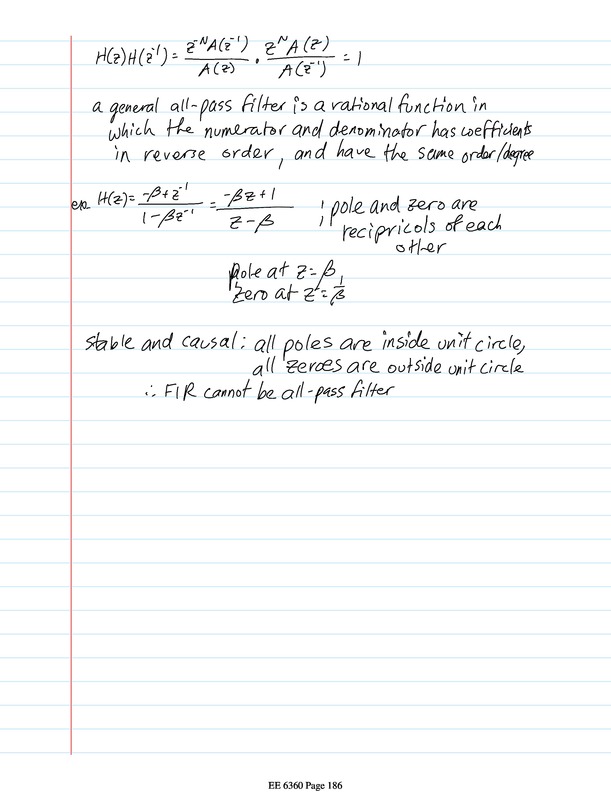 H(z)H(z⁻¹) = z⁻ᴺA(z⁻¹)/A(z) · zᴺA(z)/A(z⁻¹) = 1
a general all-pass filter is a rational function in
which the numerator and denominator has coefficients
in reverse order, and have the same order/degree
ex. H(z) = (-β+z⁻¹)/(1-βz⁻¹) = (-βz+1)/(z-β) ; pole and zero are
recipricols of each
other
pole at z=β
zero at z=1/β
stable and causal: all poles are inside unit circle,
all zeroes are outside unit circle
∴ FIR cannot be all-pass filter
EE 6360 Page 186